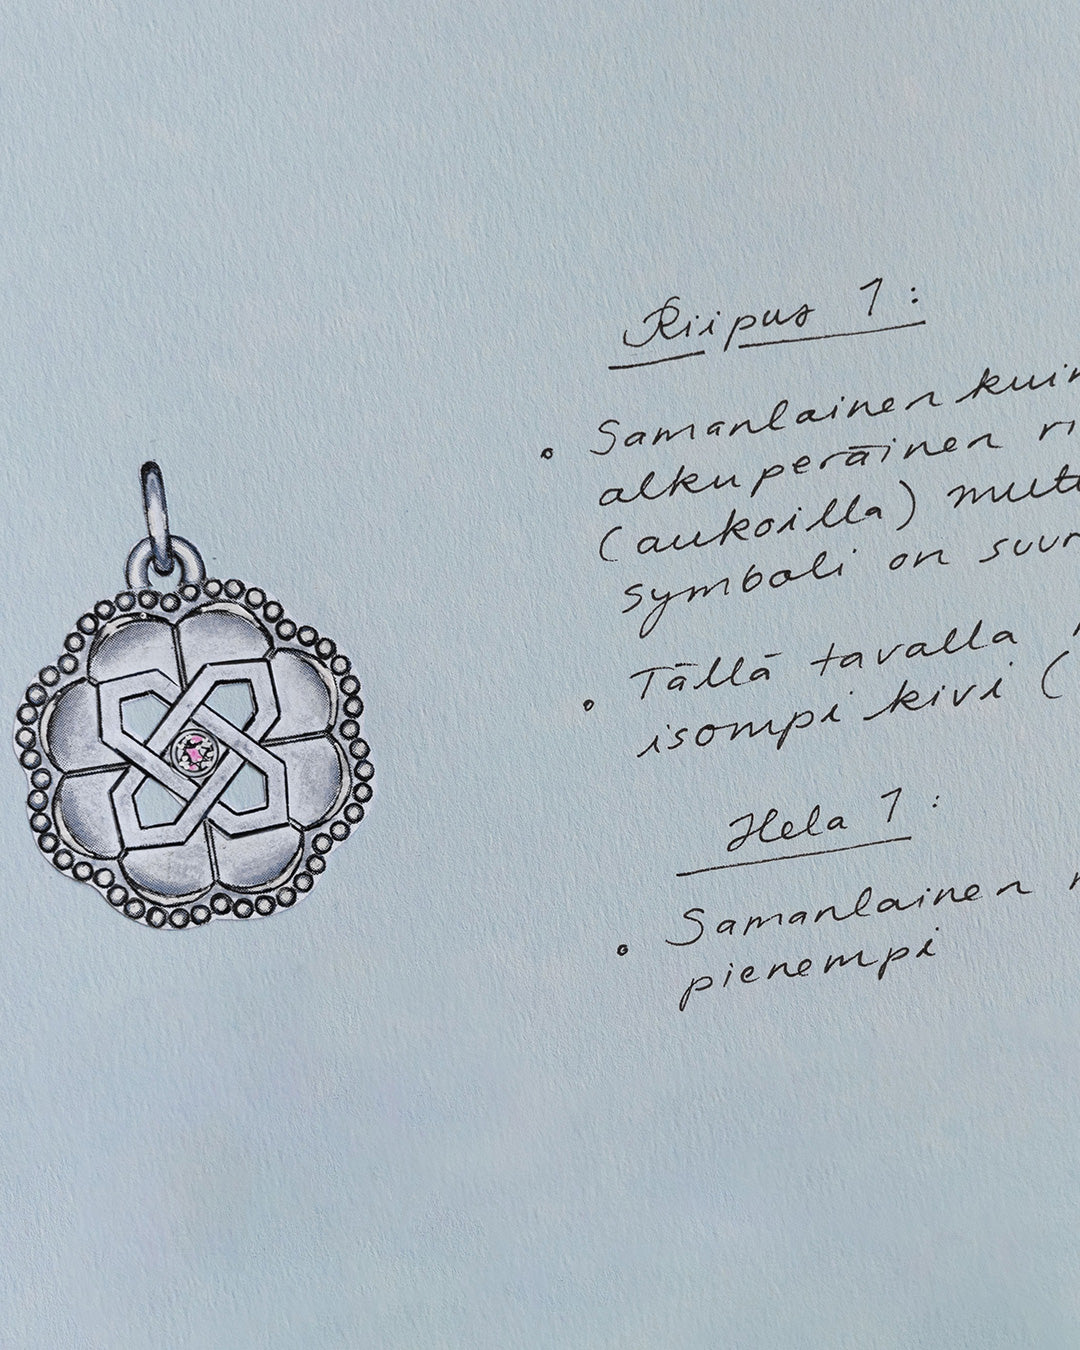 Riipus 1:
• Samanlainen kuin
alkuperäinen ri
(aukoilla) mutt
symboli on suur
• Tällä tavalla
isompi kivi (
Hela 1:
• Samanlainen
pienempi